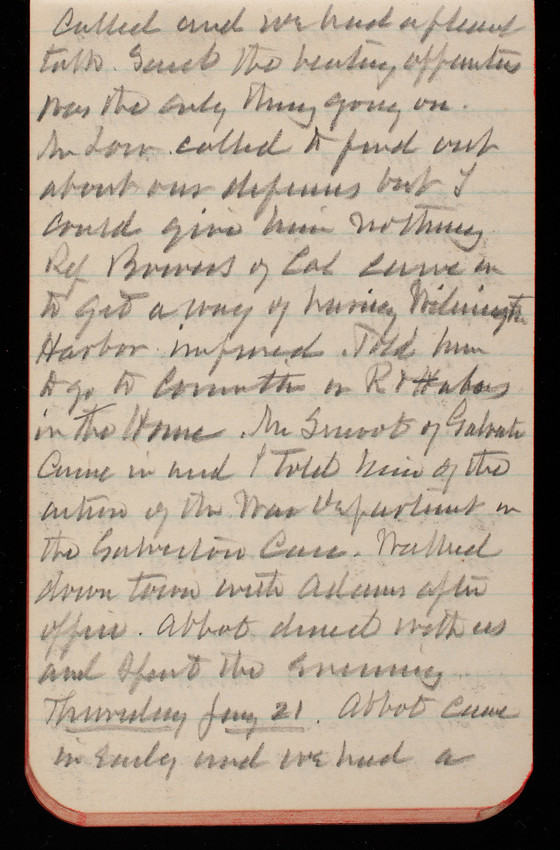 Called and we had a pleasant
talk. Smith the heating apparatus
was the only thing going on.
Mr Low called to find out
about our defenses but I
could give him nothing
Rep Bowers of Cal came in
to get a way of having Wilmington
Harbor improved. Told him
to go to Committee on R & Habors
in the House. Mr Smoot of Galvestn
Came in and I told him of the
action of the War Department in
the Galveston Case. Walked
down town with Adams after
office. Abbot dined with us
and spent the evening
Thursday Jany 21. Abbot came
in early and we had a